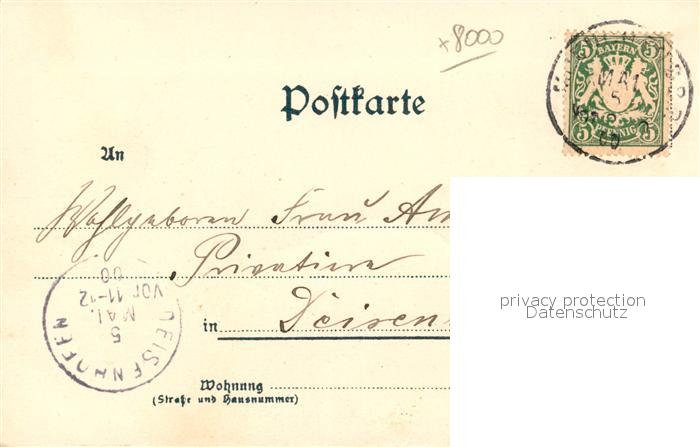 x 8000
5 BAYERN 5
5 PFENNIG 5
MAI
5
00
Postkarte
An
Wohlgeboren Frau
Privatiere
in Deisen
DEISENHOFEN
5
MAI.
VOR 11-12
00
privacy protection
Datenschutz
Wohnung
(Straße und Hausnummer)